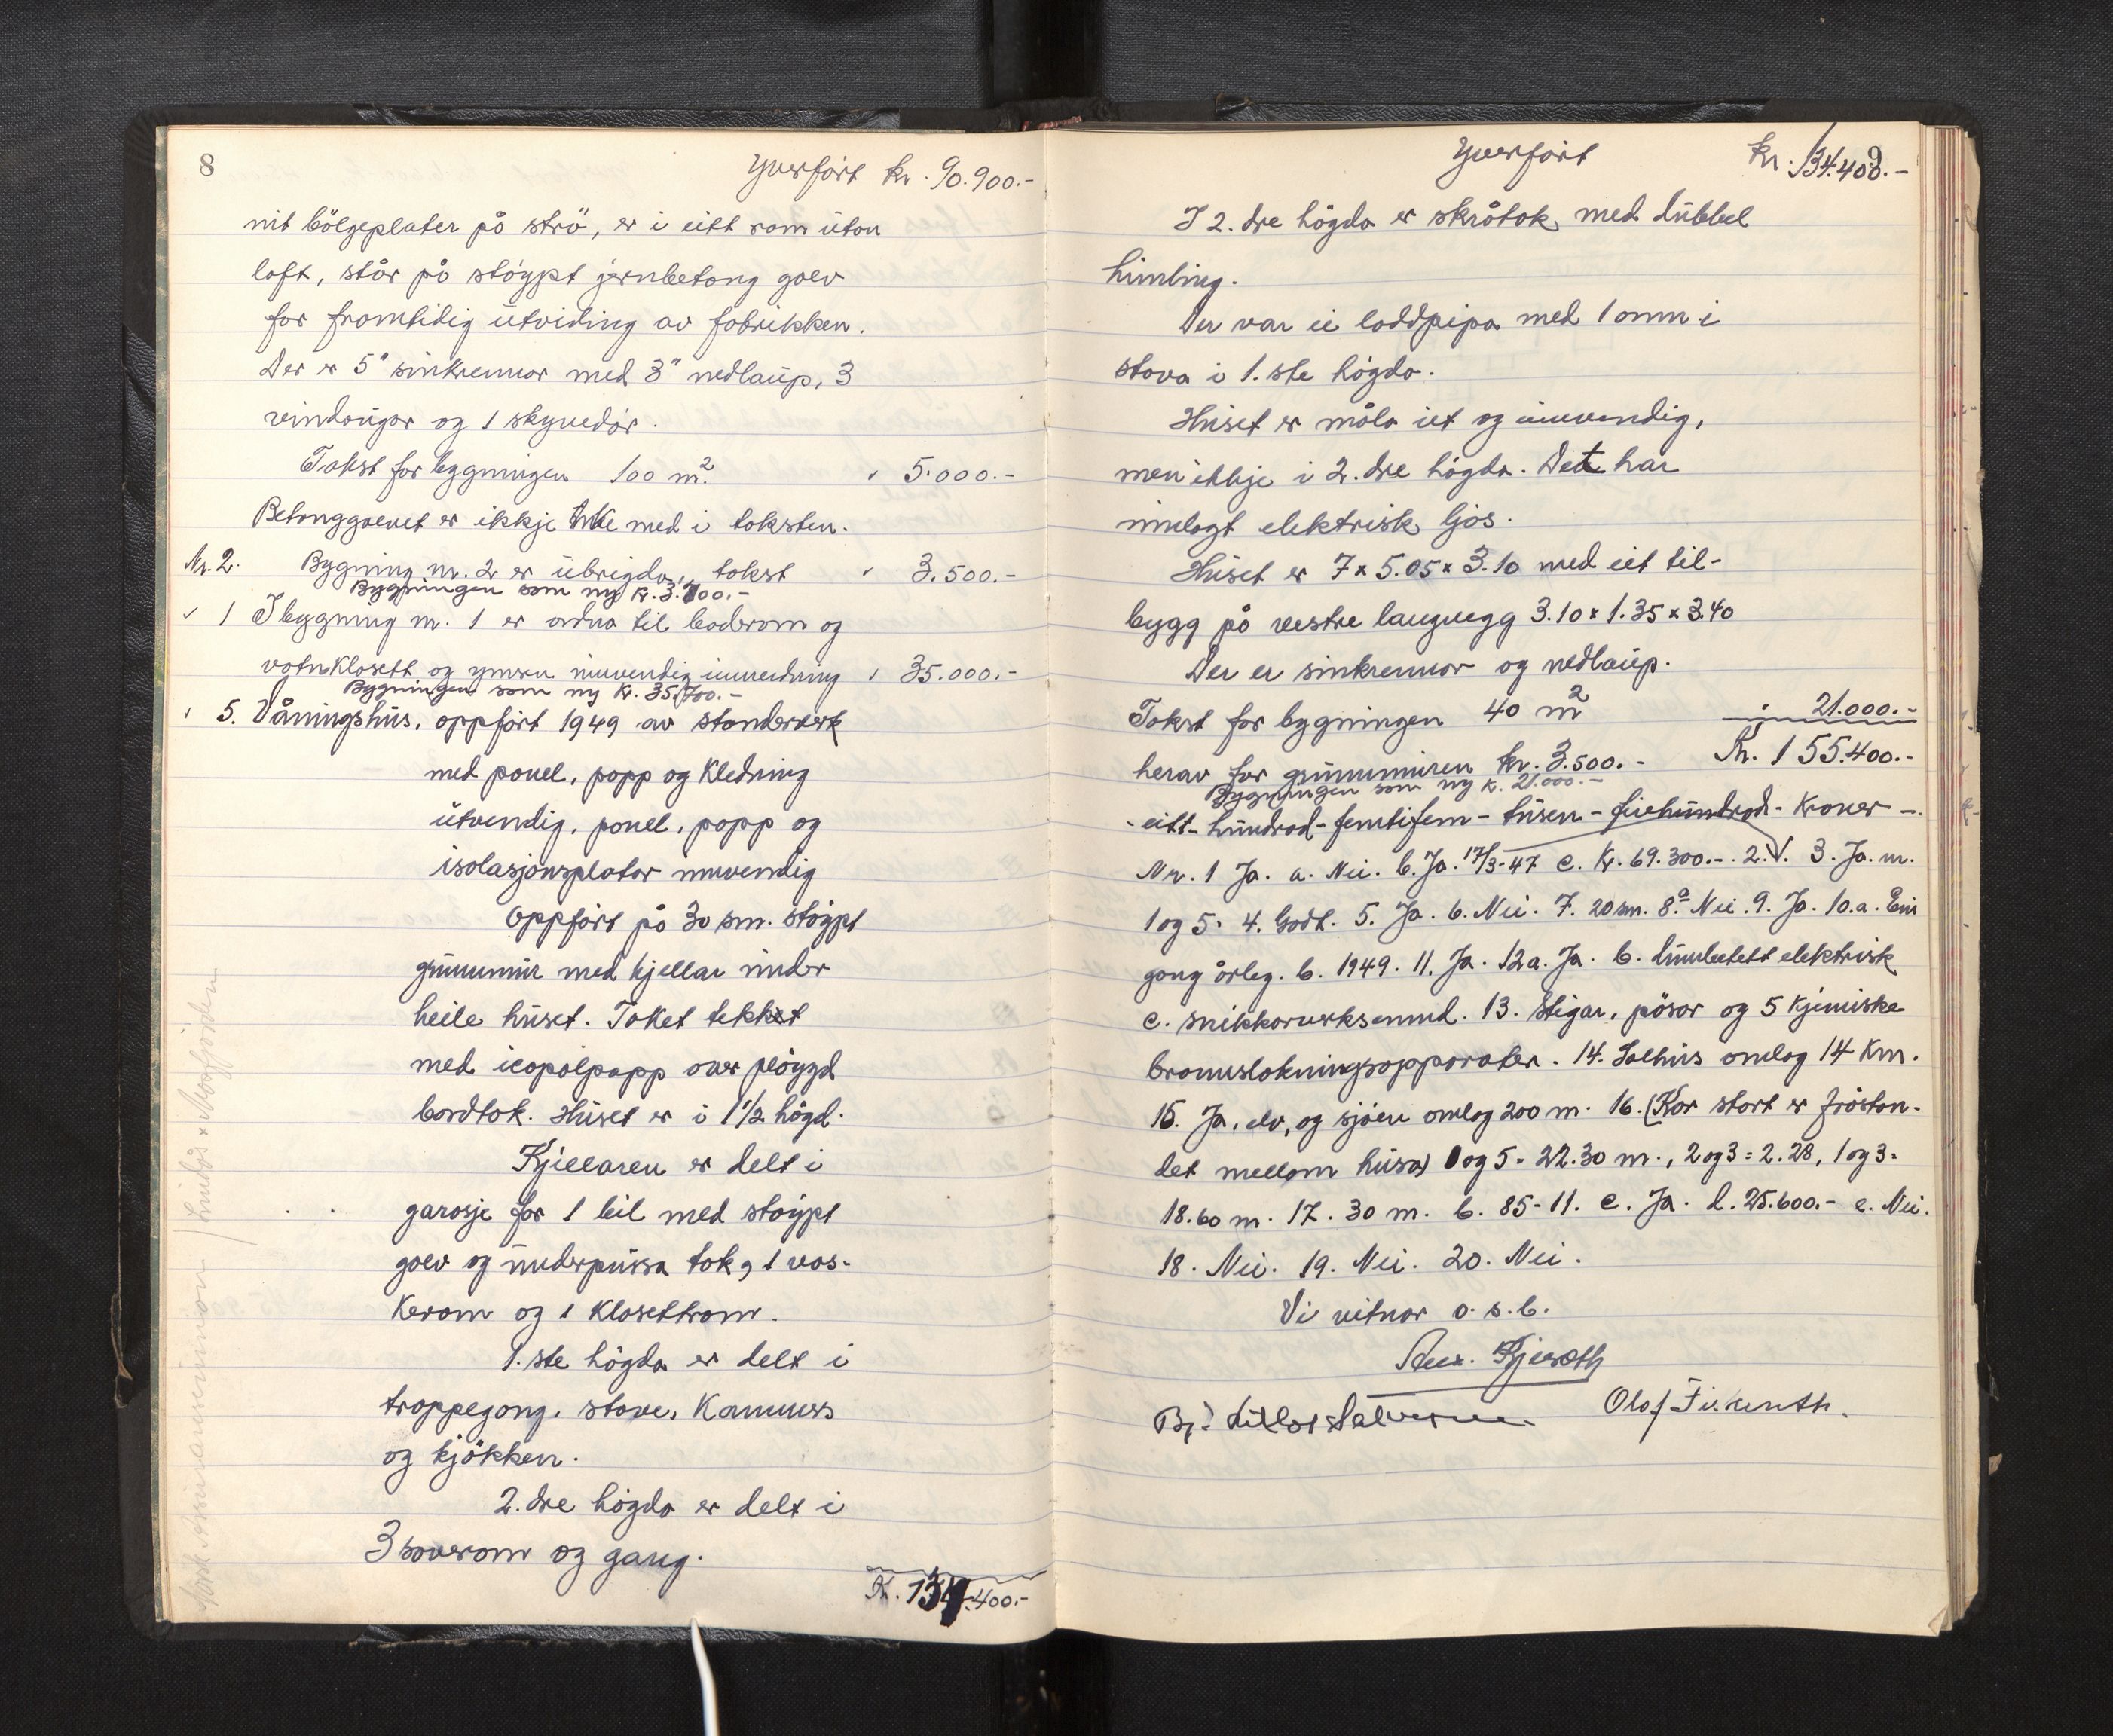 8
Yverført kr. 90.900.-
nit bölgeplater på strö, er i eitt rom utan
loft, står på støypt jernbetong golv
for framtidig utviding av fabrikken.
Der er 5" sinkrennor med 3" nedlaup, 3
vindaugor og 1 skyvedør.
Takst for bygningen 100 m². " 5.000.-
Betonggolvet er ikkje teke med i taksten.
Nr. 2. Bygning nr. 2 er ubrigda, takst " 3.500.-
Bygningen som ny kr. 3.700.-
" 1 I bygning nr. 1 er ordna til baderom og
vatnklosett og ymsen innvendig innreidning " 35.000.-
Bygningen som ny kr. 35.700.-
" 5. Våningshus, oppført 1949 av standerverk
med panel, papp og kledning
utvendig, panel, papp og
isolasjonsplator innvendig
Oppført på 30 sm. støypt
grunnmur med kjellar under
heile huset. Taket tekket
med icopalpapp over pløygd
bordtak. Huset er i 1½ högd.
Kjellaren er delt i
garasje for 1 bil med støypt
golv og underpussa tak, 1 vas-
kerom og 1 klosettrom.
1. ste högda er delt i
trappegong, stove, kammers
og kjökken.
2. dre högda er delt i
3 soverom og gang.
Kr. 134.400.-
Norsk Assuranseunion / Lindås & Masfjorden
Yverført kr. 134.400.-
I 2. dre högda er skråtak med dubbel
himling.
Der var ei loddpipa med 1 omn i
stova i 1. ste högda.
Huset er måla ut og innvendig,
men ikkje i 2. dre högda. Det har
innlagt elektrisk ljos.
Huset er 7 x 5.05 x 3.10 med eit til-
bygg på vestre langvegg 3.10 x 1.35 x 3.40
Der er sinkrennor og nedlaup.
Takst for bygningen 40 m² " 21.000.-
herav for grunnmuren kr. 3.500.- Kr. 155.400.-
Bygningen som ny kr. 21.000.-
- eitt - hundrad - femtifem - tusen - firehundrad - kroner -.
Nr. 1 Ja. a. Nei. b. Ja. 17/3-47 c. kr. 69.300.-. 2. V. 3. Ja. nr.
1 og 5. 4. Godt. 5. Ja. 6. Nei. 7. 20 sm. 8.a Nei. 9. Ja. 10. a. Ein
gong årleg. b. 1949. 11. Ja. 12 a. Ja. b. Innebetett elektrisk
c. snikkarverksemnd. 13. Stigar, pösor og 5 kjemiske
brannslokningsapparater. 14. Salhus omlag 14 km.
15. Ja, elv, og sjøen omlag 200 m. 16. (Kor stort er fråstan-
det mellom husa) 1 og 5 = 22.30 m., 2 og 3 = 2.28, 1 og 3 =
18.60 m. 17. 30 m. b. 85-11. c. Ja. d. 25.600.- e. Nei.
18. Nei. 19. Nei. 20. Nei.
Vi vitnar o. s. b.